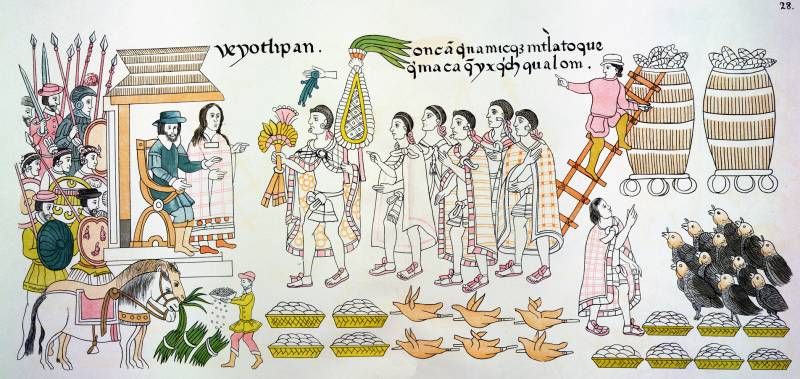 28.
veyotlipan. oncã q̃namicq̃ mtlatoque
q̃maca q̃ yxq̃ch qualoni.